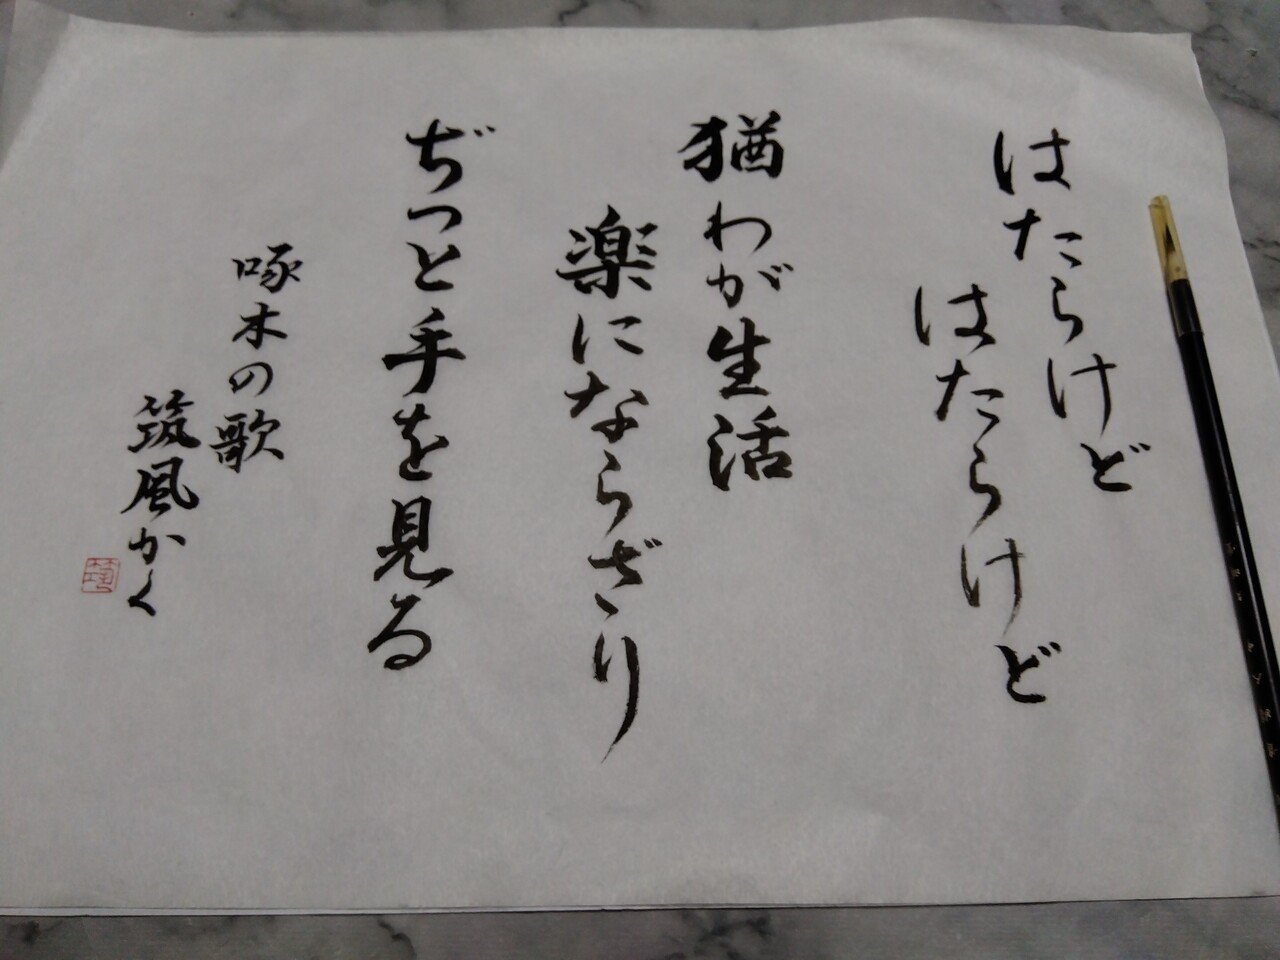 はたらけど
はたらけど
猶わが生活
楽にならざり
ぢつと手を見る
啄木の歌
筑風かく